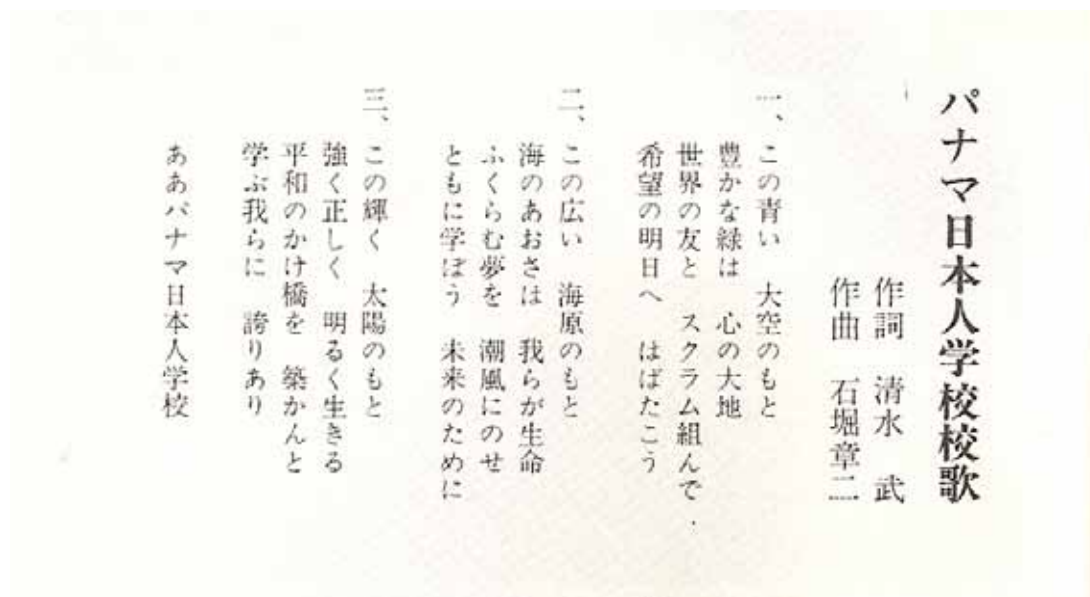 パナマ日本人学校校歌
作詞　清水　武
作曲　石堀章二
一、この青い　大空のもと
豊かな緑は　心の大地
世界の友と　スクラム組んで
希望の明日へ　はばたこう
二、この広い　海原のもと
海のあおさは　我らが生命
ふくらむ夢を　潮風にのせ
ともに学ぼう　未来のために
三、この輝く　太陽のもと
強く正しく　明るく生きる
平和のかけ橋を　築かんと
学ぶ我らに　誇りあり
ああパナマ日本人学校